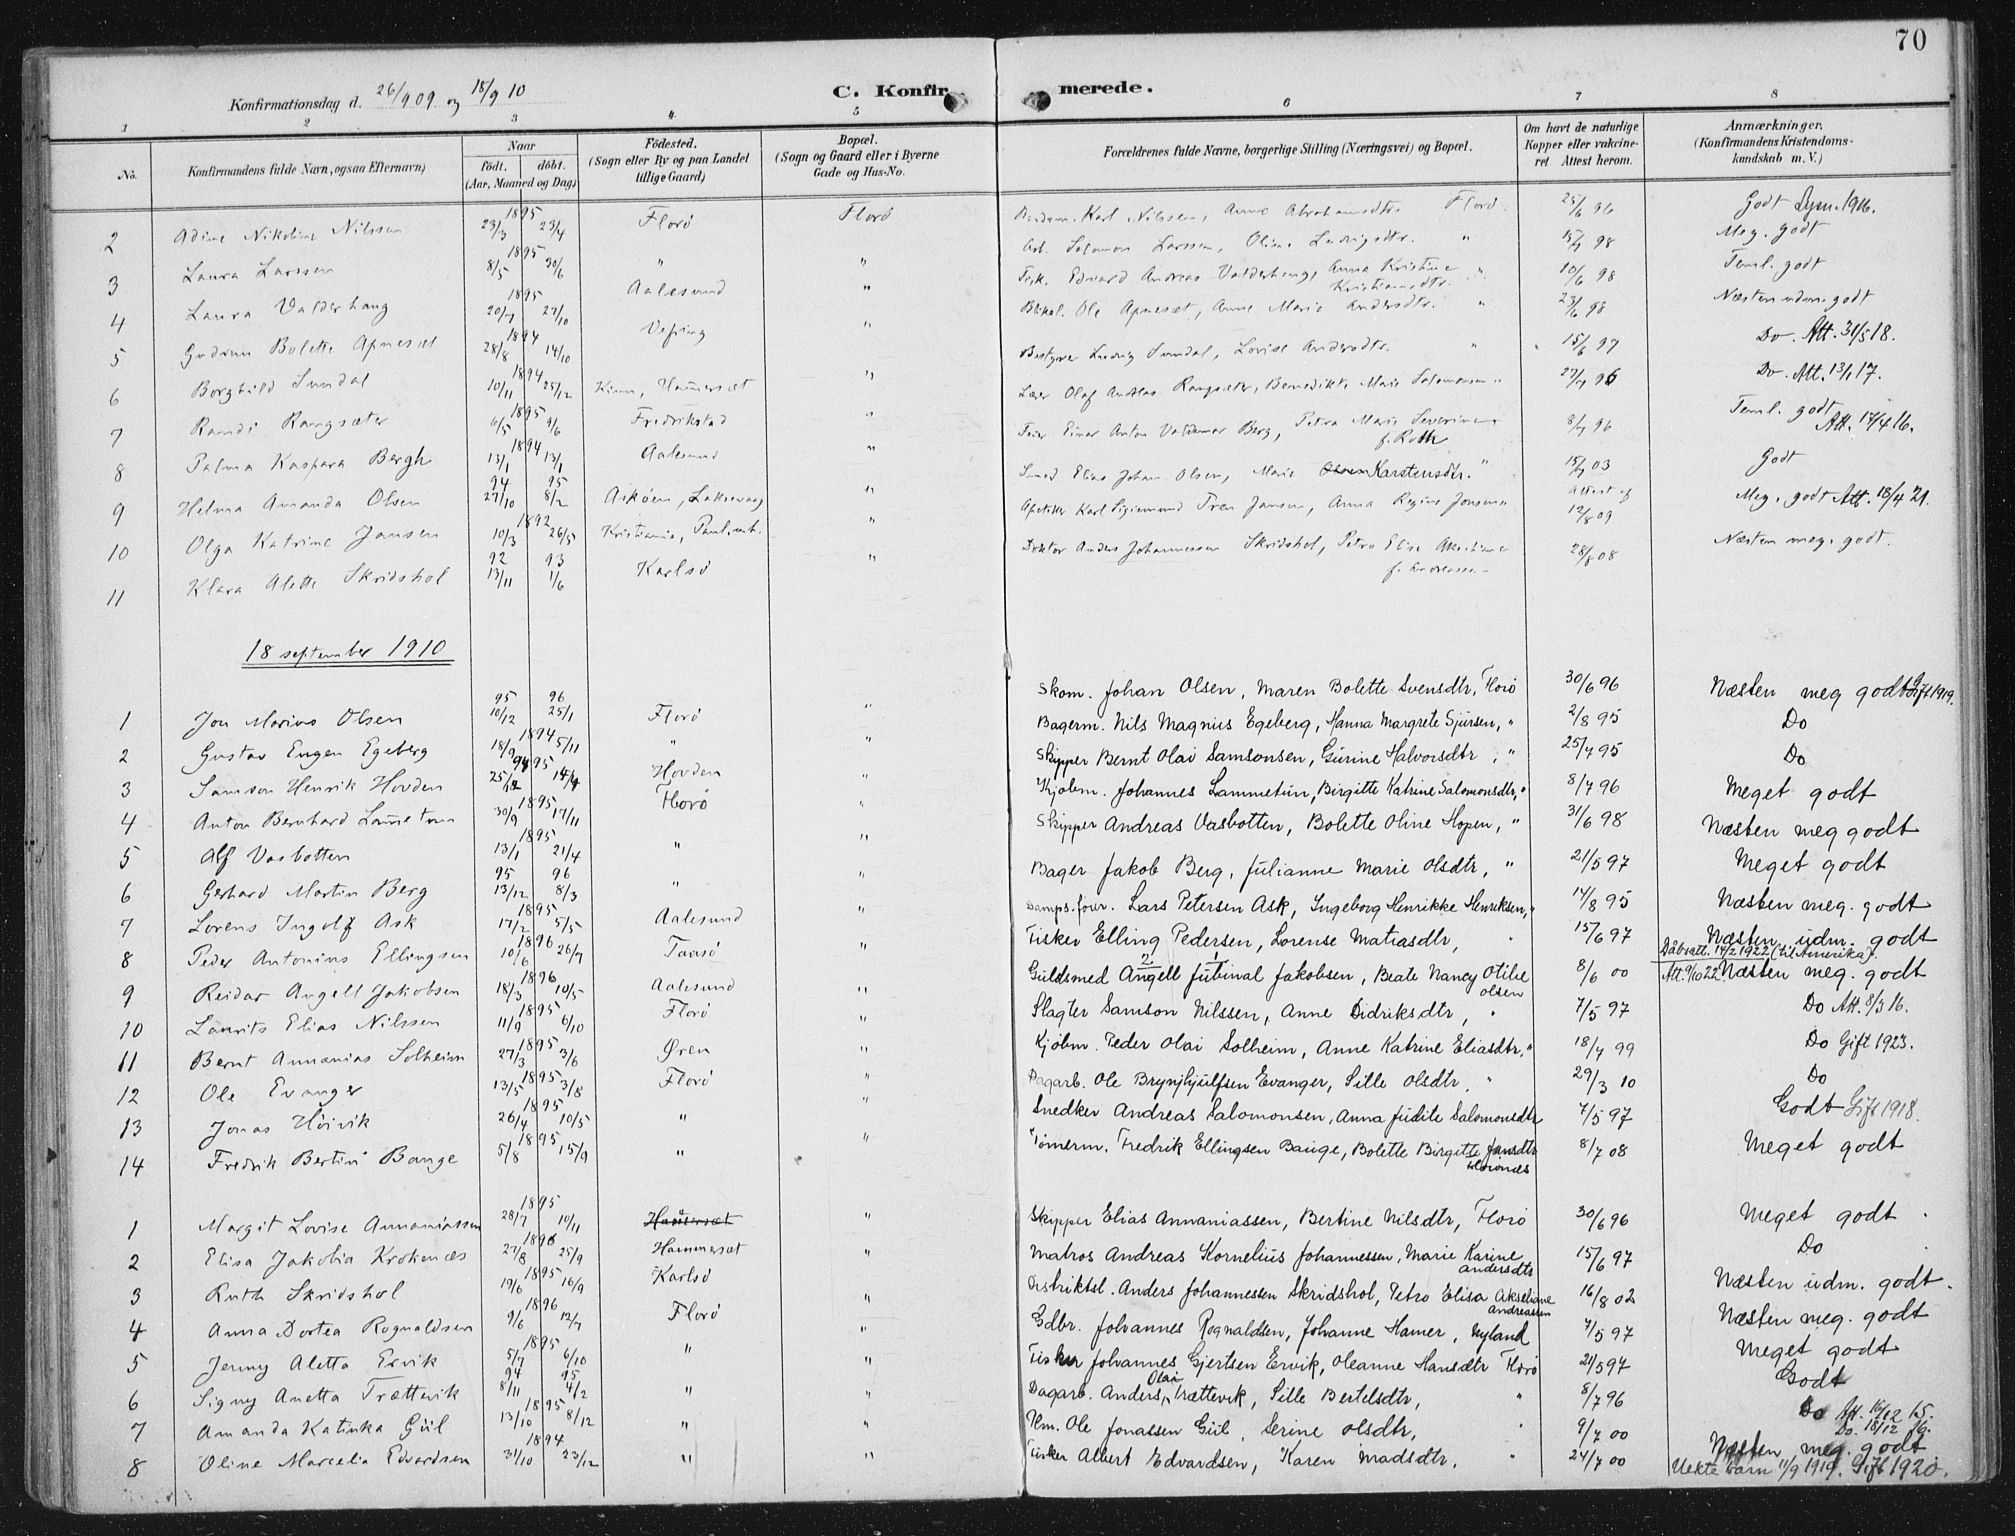 70
Konfirmationsdag d. 26/9 09 og 18/9 10
C. Konfirmerede.
1 2 3 4 5 6 7 8
No.
Konfirmandens fulde Navn, ogsaa Efternavn)
Naar
födt. döbt.
(Aar, Maaned og Dag)
Födested.
(Sogn eller By og paa Landet
tillige Gaard)
Bopæl.
(Sogn og Gaard eller i Byerne
Gade og Hus-No.
Forældrenes fulde Navne, borgerlige Stilling (Næringsvei) og Bopæl.
Om havt de naturlige
Kopper eller vakcine-
ret Attest herom.
Anmærkninger.
(Konfirmandens Kristendoms-
kundskab m. V.)
2 Adine Nikoline Nilssen 1895 23/3 23/4 Florö Florö Karl Nilssen, Anne Abrahamsdtr. Florö. 25/6 96 Godt Dym. 1916.
3 Laura Larssen 1895 8/5 30/6 " " Arb. Salomon Larssen, Oline Ludvigsdtr. " 98 Meg. godt
4 Laura Valderhaug 1895 20/7 27/10 Aalesund " Fisk. Edvard Andreas Valderhaug, Anna Kristine Kristiansdtr. " 10/6 98 Teml. godt
5 Gudrun Bolette Apnesæt 1894 28/8 14/10 " Ole Apnesæt, Anne Marie Andersdtr. " 23/6 98 Næsten udm. godt
6 Borghild Sundal 1894 10/11 25/12 Kinn, Hammersæt " Bestyrer Ludvig Sundal, Lovise Andersdtr. " 15/6 97 Do. Att. 31/5 18.
7 Randi Rangsæter 1895 6/5 9/6 Fredrikstad " Lærer Olaf Andreas Rangsæter, Benedikte Marie Salomonsen " 96 Do. Att. 13/1 17.
8 Palma Kaspara Bergh 1894 13/1 13/1 Aalesund " Einar Anton Valdemar Berg, Petra Marie Severine f. Roth 8/7 96 Teml. godt Att. 17/4 16.
9 Helma Amanda Olsen 94 27/10 95 8/2 Askøen, Laksevaag " Smed Elias Johan Olsen, Marie Karstensdtr. " 03 Godt
10 Olga Katrine Jansen 1892 10/3 26/5 Kristiania, " Apotheker Karl Sigismund Jansen, Anna Regine Jonsen " Attest af 12/8 09 Meg. godt Att. 18/4 21.
11 Klara Alette Skridshol 92 13/11 93 1/6 Karlsö " Doktor Anders Johannessen Skridshol, Petro Elise Akseliane f. Andreassen 28/8 08 Næsten meg. godt.
18 september 1910
1 Jon Marius Olsen 95 10/12 96 25/1 Florö " Skom. Johan Olsen, Maren Bolette Svensdtr, Florö 30/6 96 Næsten meg godt Gift 1919.
2 Gustav Eugen Egeberg 1894 18/9 5/11 " " Bagerm. Nils Magnus Egeberg, Hanna Margrete Sjursen, " 2/8 95 Do
3 Samson Henrik Hovden 94 25/12 95 14/4 Hovden " Skipper Bernt Olai Samsonsen, Gurine Halvorsdtr, " 25/7 95 Do
4 Anton Bernhard Lammetun 1895 30/9 17/11 Florö " Kjøbm. Johannes Lammetun, Birgitte Katrine Salomonsdtr, " 8/7 96 Meget godt
5 Alf Vasbotten 1895 13/1 21/4 " " Skipper Andreas Vasbotten, Bolette Oline Hopen, " 31/6 98 Næsten meg godt
6 Gerhard Martin Berg 95 13/12 96 8/3 " " Bager Jakob Berg, Julianne Marie Olsdtr, " 21/5 97 Meget godt
7 Lorens Ingolf Ask 1895 17/2 5/5 Aalesund " Damps.förer. Lars Petersen Ask, Ingeborg Henrikke Henriksen, " 14/8 95 Næsten meg. godt
8 Peder Antonius Ellingsen 1896 10/6 26/7 Tansö " Fisker Elling Pedersen, Lorense Matiasdtr, " 15/6 97 Næsten udm. godt
Dåbsatt. 14/2 1922 (til Amerika).
9 Reidar Angell Jakobsen 1896 18/3 10/5 Aalesund " Guldsmed Angell Jubinal Jakobsen, Beate Nancy Otilie Olsen 8/6 00 Att. 9/10 22. Næsten meg. godt
10 Laurits Elias Nilssen 1895 11/9 6/10 Florö " Slagter Samson Nilssen, Anne Didriksdtr, " 7/5 97 Do Att. 8/3 16.
11 Bernt Annanias Solheim 1895 27/3 3/6 Øren " Kjöbm. Peder Olai Solheim, Anne Katrine Eliasdtr, " 18/7 99 Do Gift 1923.
12 Ole Evanger 1895 13/5 3/8 Florö " Dagarb. Ole Brynjhjulfsen Evanger, Sille Olsdtr, " 29/3 10 Do
13 Jonas Höivik 1895 26/4 10/5 " " Snedker Andreas Salomonsen, Anna Judite Salomonsdtr 7/5 97 Godt Gift 1918.
14 Fredrik Bertin Bauge 1895 5/8 15/9 " " Tömerm. Fredrik Ellingsen Bauge, Bolette Birgitte Jansdtr 8/7 08 Meget godt
1 Margit Lovise Annaniassen 1895 28/7 10/11 Hammersæt " Skipper Elias Annaniassen, Bertine Nilsdtr, Florö 30/6 96 Meget godt
2 Elisa Jakobia Krokenæs 1896 27/8 25/9 Hammersæt " Matros Andreas Kornelius Johannessen, Marie Karine Andersdtr 15/6 97 Do
3 Ruth Skridshol 1895 19/6 16/9 Karlsö " Distriktsl. Anders Johannessen Skridshol, Petro Elisa Akseliane Andreassen 16/8 02 Næsten udm. godt.
4 Anna Dortea Rognaldsen 1896 9/6 12/7 Florö " Gdbr. Johannes Rognaldsen, Johanne Hamer, Nyland 7/5 97 Næsten meg. godt
5 Jenny Aletta Ervik 1895 5/7 6/10 " " Fisker Johannes Gjertsen Ervik, Oleanne Hansdtr Florö 21/5 97 Meget godt
6 Signy Anetta Trættevik 94 8/11 95 4/2 " " Dagarb. Anders Olai Trættevik, Sille Bertelsdtr, " 8/7 96 Godt
7 Amanda Katinka Gül 1895 13/10 8/12 " " Hm. Ole Jonassen Gül, Serine Olsdtr, " 9/7 00 Do Att. 16/12 15.
Do. 18/12 16.
8 Oline Marcelia Edvardsen 1894 31/10 23/12 " " Fisker Albert Edvardsen, Karen Madsdtr, " 24/7 00 Næsten meg. godt
Uekte barn 11/9 1919. Gift 1920.